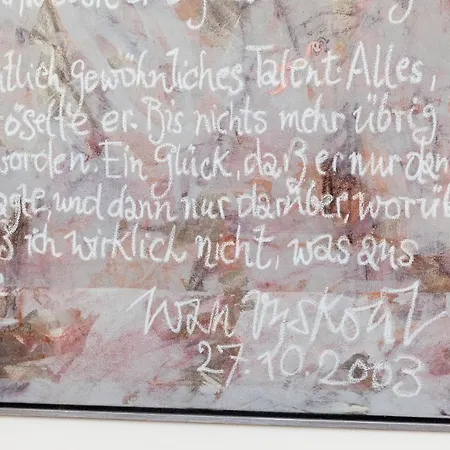 ntlich gewöhnliches Talent. Alles,
öselte er. Bis nichts mehr übrig
worden. Ein Glück, daß er nur dan
agte, und dann nur darüber, worüb
s ich wirklich nicht, was aus
27.10.2003